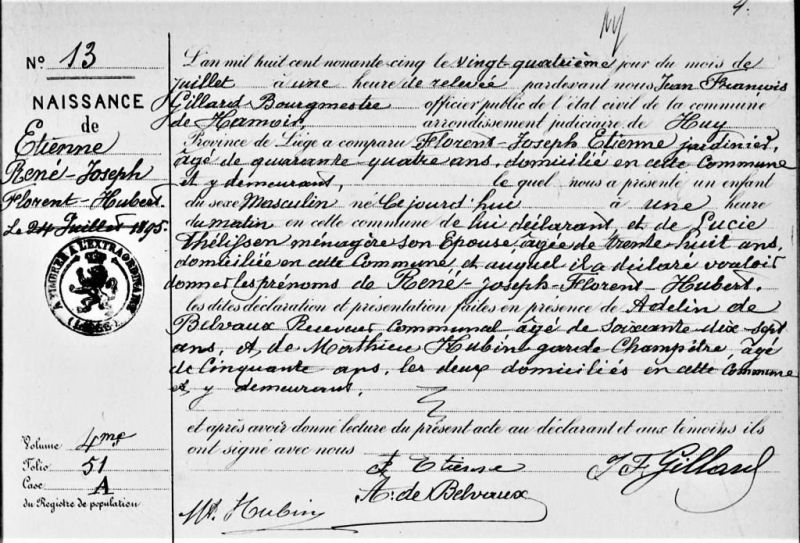 4.
N° 13
NAISSANCE
de
Etienne
René-Joseph
Florent-Hubert.
Le 24 Juillet 1895.
A TIMBRER A L'EXTRAORDINAIRE
(LIÉGE)
Volume 4me
Folio 51
Case A
du Registre de population
L'an mil huit cent nonante-cinq le vingt-quatrième jour du mois de
juillet à une heure de relevée pardevant nous Jean François
Gillard Bourgmestre officier public de l'état civil de la commune
de Hamoir, arrondissement judiciaire de Huy
Province de Liége a comparu Florent-Joseph Etienne jardinier,
âgé de quarante-quatre ans, domicilié en cette Commune
et y demeurant, le quel nous a présenté un enfant
du sexe Masculin né Cejourd'hui à une heure
du matin en cette commune de lui déclarant, et de Lucie
Thélissen ménagère son Epouse, âgée de trente-huit ans,
domiciliée en cette Commune et auquel il a déclaré vouloir
donner les prénoms de René-Joseph-Florent-Hubert.
les dites déclaration et présentation faites en présence de Adelin de
Belvaux Receveur Communal âgé de Soixante dix-sept
ans, et de Mathieu Hubin garde Champêtre, âgé
de Cinquante ans, les deux domiciliés en cette Commune
et y demeurant.
et après avoir donné lecture du présent acte au déclarant et aux témoins ils
ont signé avec nous
Etienne
J F Gillard
A. de Belvaux
Mt. Hubin